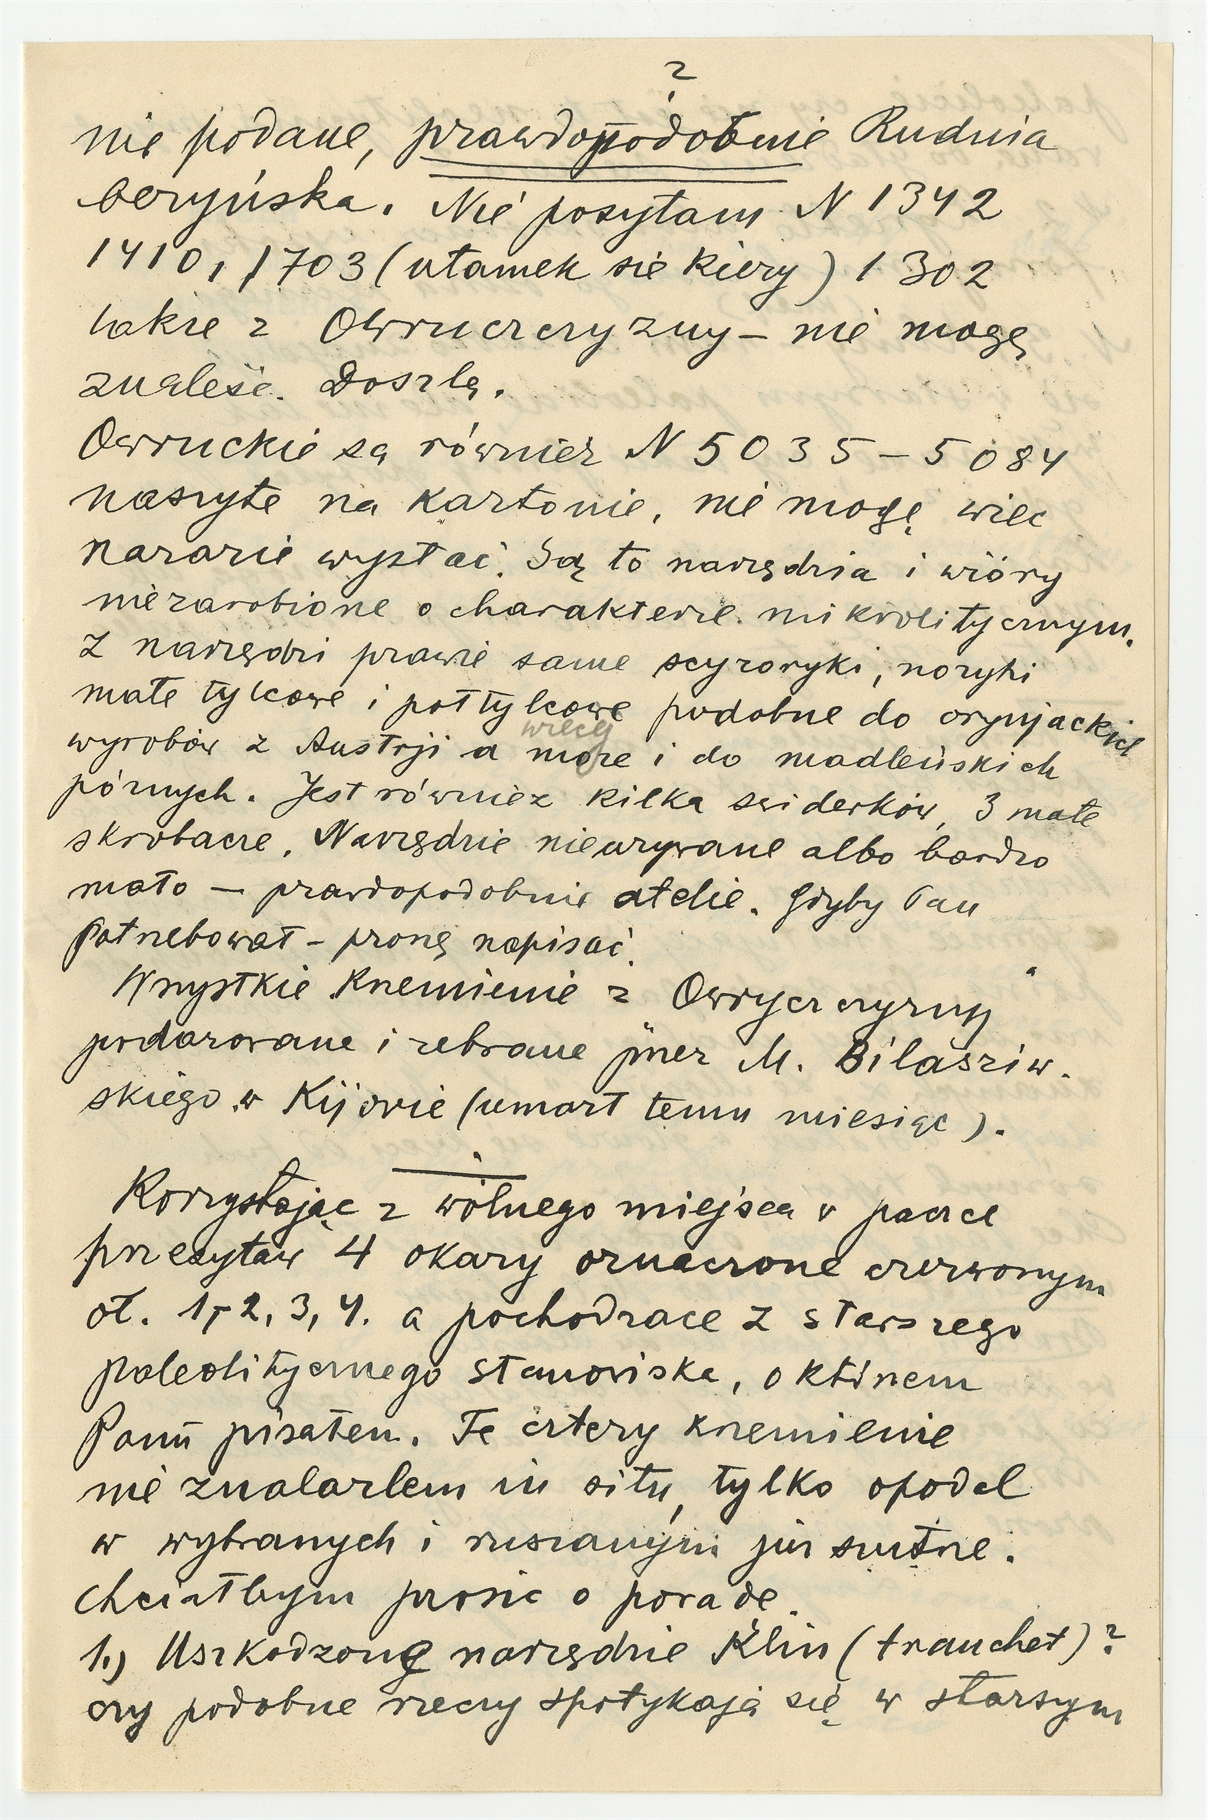 ?
nie podane, prawdopodobnie Rudnia
beryńska. Nie posyłam N 1342
1410, 1703 (ułamek siekiery) 1302
także z Owruczczyzny – nie mogę
znaleść. Doszlę.
Owruckie są również N 5035 – 5084
naszyte na kartonie, nie mogę więc
narazie wysłać. Są to narzędzia i wióry
niezarobione o charakterze mikrolitycznym.
Z narzędzi prawie same scyzoryki, nożyki
małe tylcowe i półtylcowe podobne do oryniackich
więcej
wyrobów z Austrji a może i do madleńskich
póznych. Jest również kilka swiderków, 3 małe
skrobacze. Narzędzie nieużywane albo bardzo
mało – prawdopodobnie atelie. Gdyby Pan
Potrzebował – proszę napisać.
Wszystkie krzemienie z Owryczczyzny
podarowane i zebrane przez M. Bilasziw-
skiego w Kijowie (umarł temu miesiąc).
Korzystając z wolnego miejsca w paczce
przesyłam 4 okazy oznaczone czerwonym
oł. 1, 2, 3, 4. a pochodzące z starszego
paleolitycznego stanowiska, o którem
Panu pisałem. Te cztery krzemienie
nie znalazłem in situ, tylko opodal
w wybranym i ruszanym już
chciałbym prosić o poradę.
1.) Uszkodzone narzędzie Klin (tranchet)?
czy podobne rzeczy spotykają się w starszym